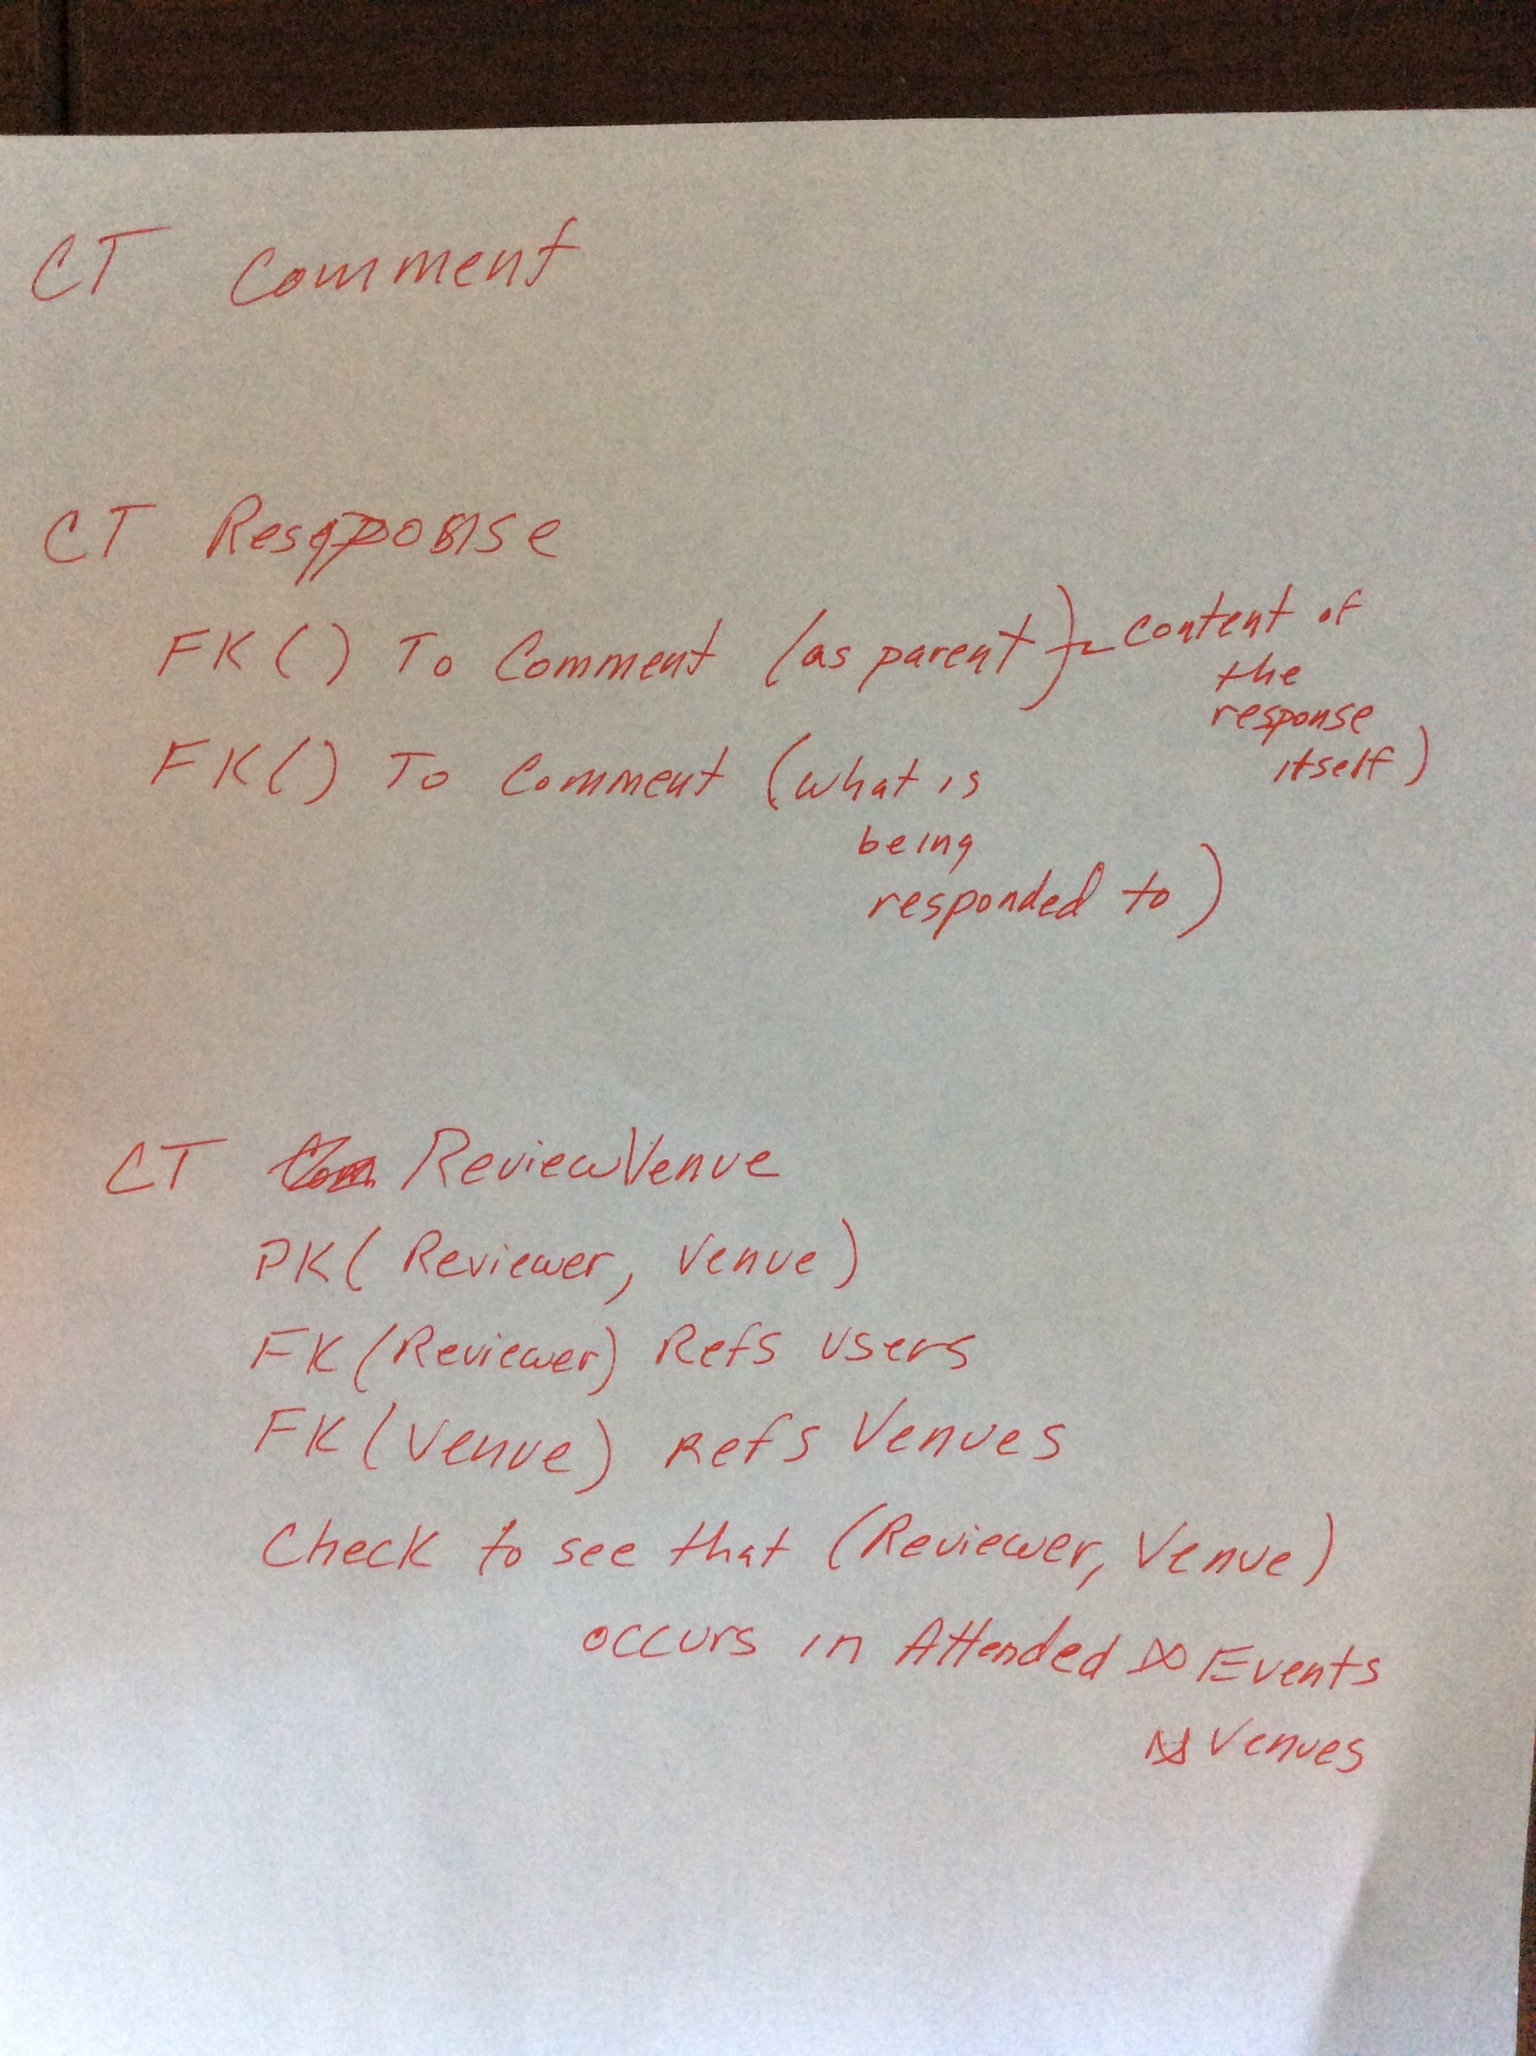 CT Comment
CT Response
FK ( ) To Comment (as parent) - content of
the
response
itself)
FK ( ) To Comment (what is
being
responded to)
CT ReviewVenue
PK ( Reviewer, Venue )
FK (Reviewer) Refs users
FK (Venue) Refs Venues
Check to see that (Reviewer, Venue)
occurs in Attended ⋈ Events
⋈ Venues